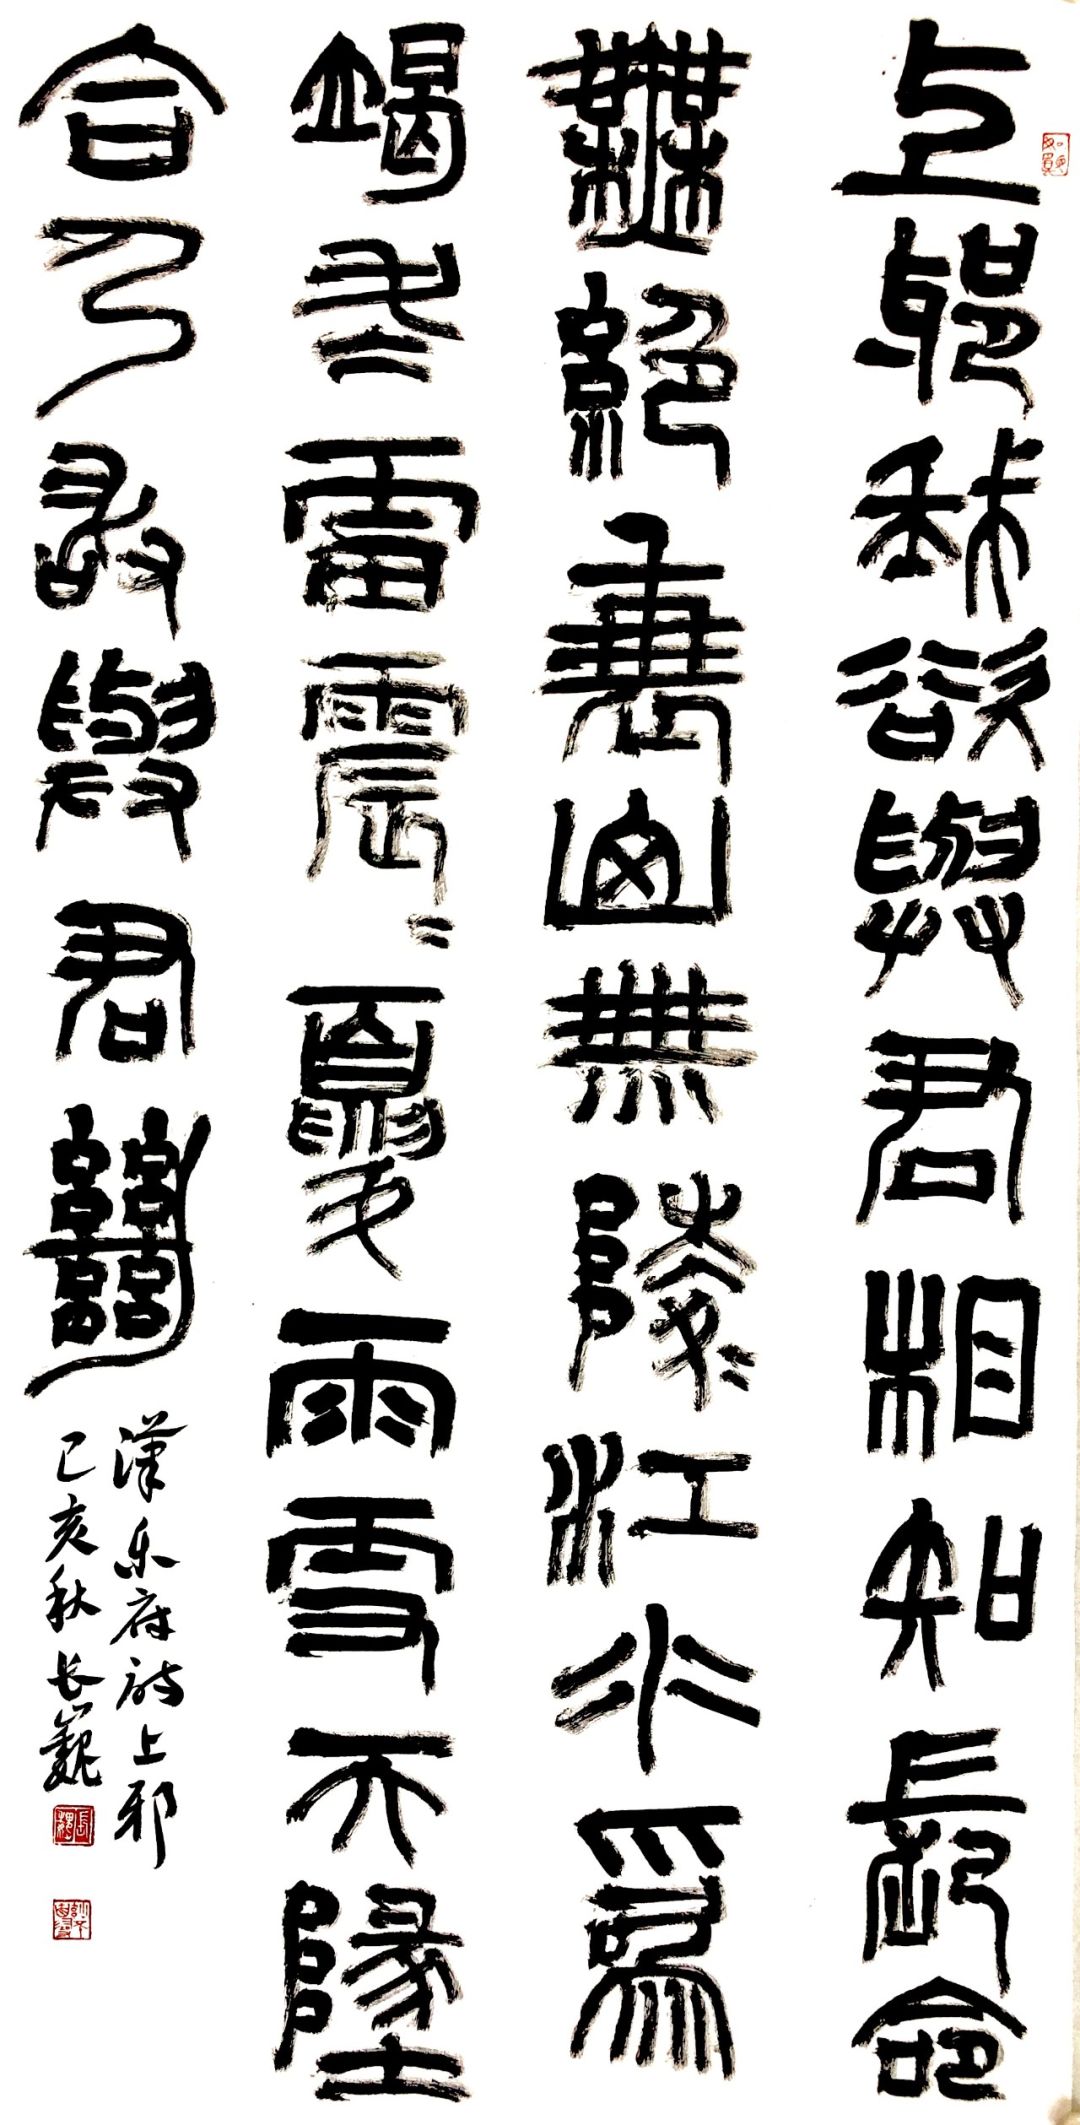 上邪我欲與君相知長命
無絕衰山無陵江水為
竭冬雷震〻夏雨雪天墬
合乃敢與君絕
漢乐府诗上邪
己亥秋长巍